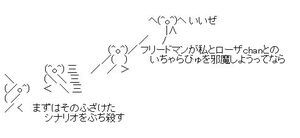 いいぜ
フリードマンが私とローザchanとの
いちゃらびゅを邪魔しようってなら
まずはそのふざけた
シナリオをぶち殺す